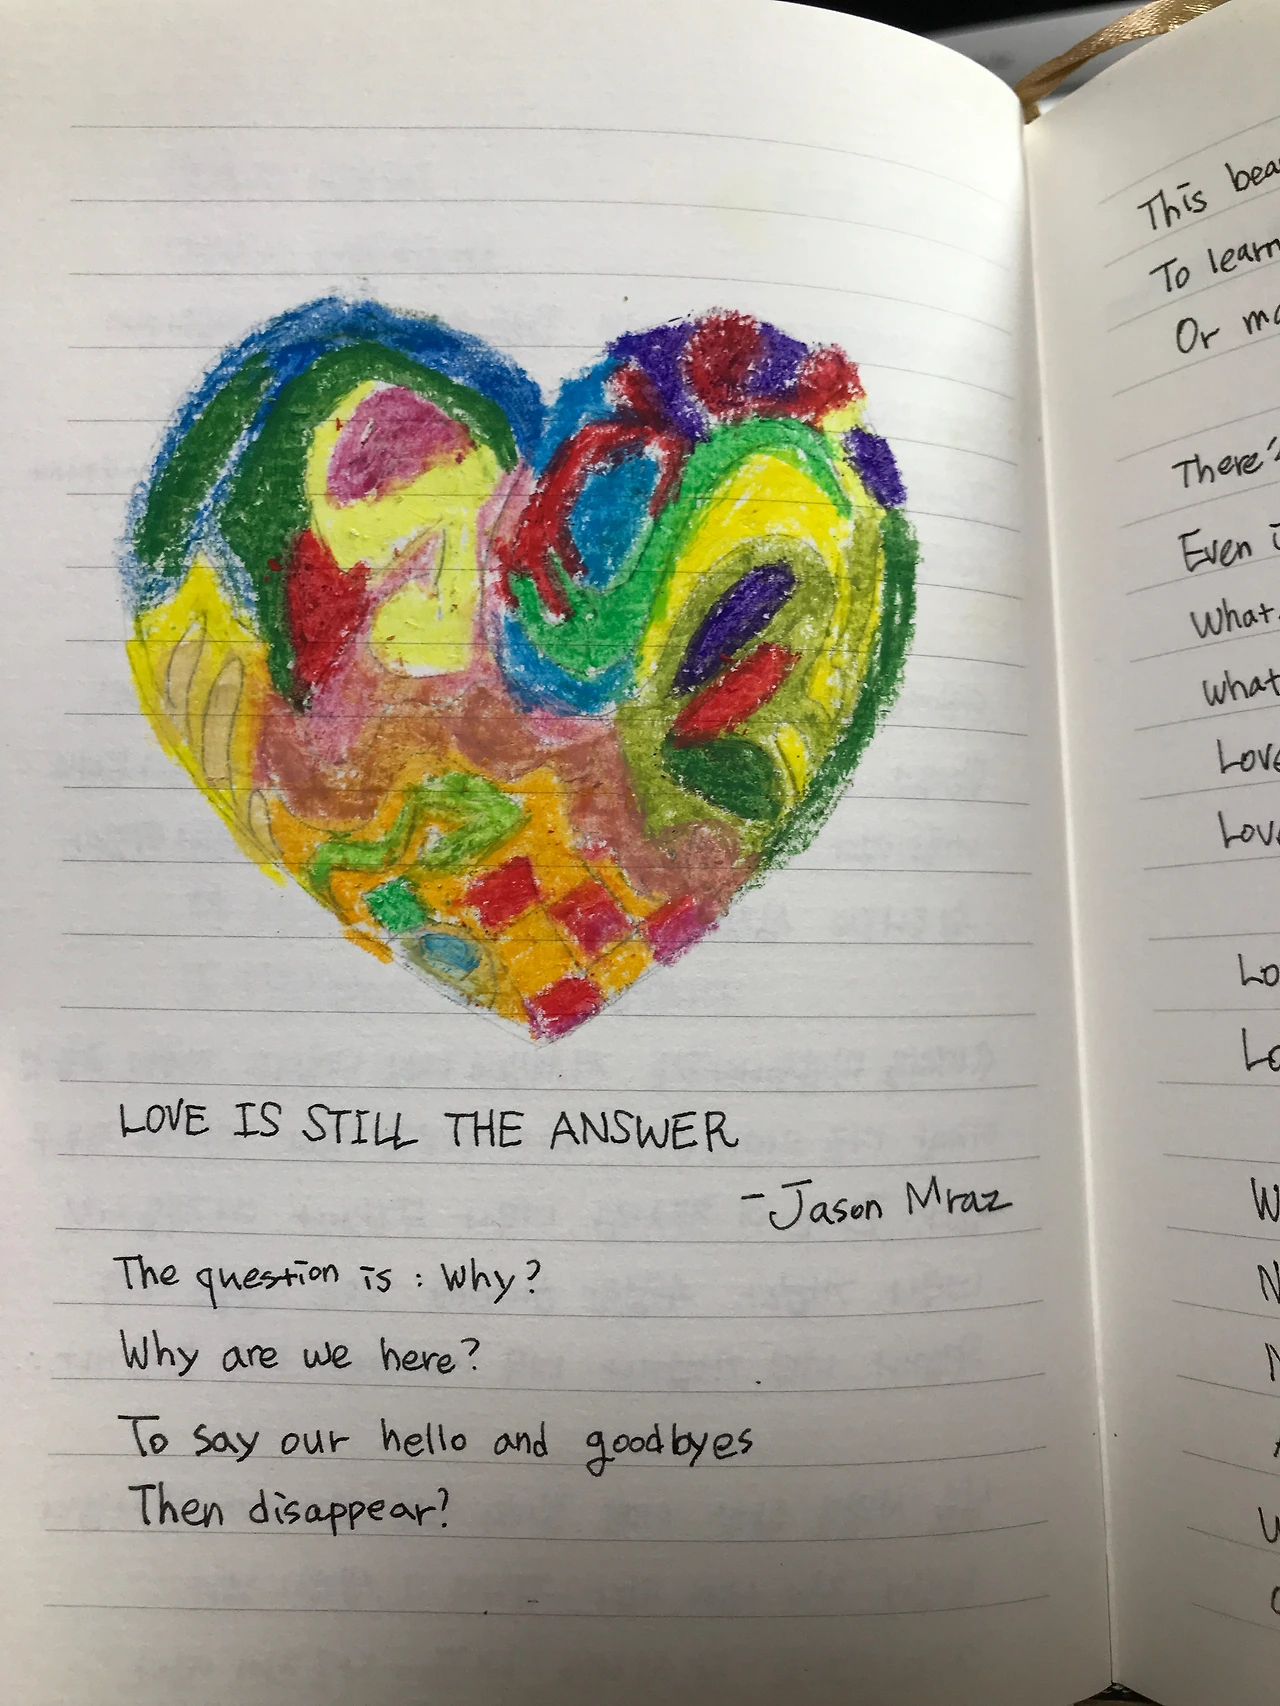 LOVE IS STILL THE ANSWER
- Jason Mraz
The question is : Why?
Why are we here?
To say our hello and goodbyes
Then disappear?
This
To learn
Or
There's
Even
what
what